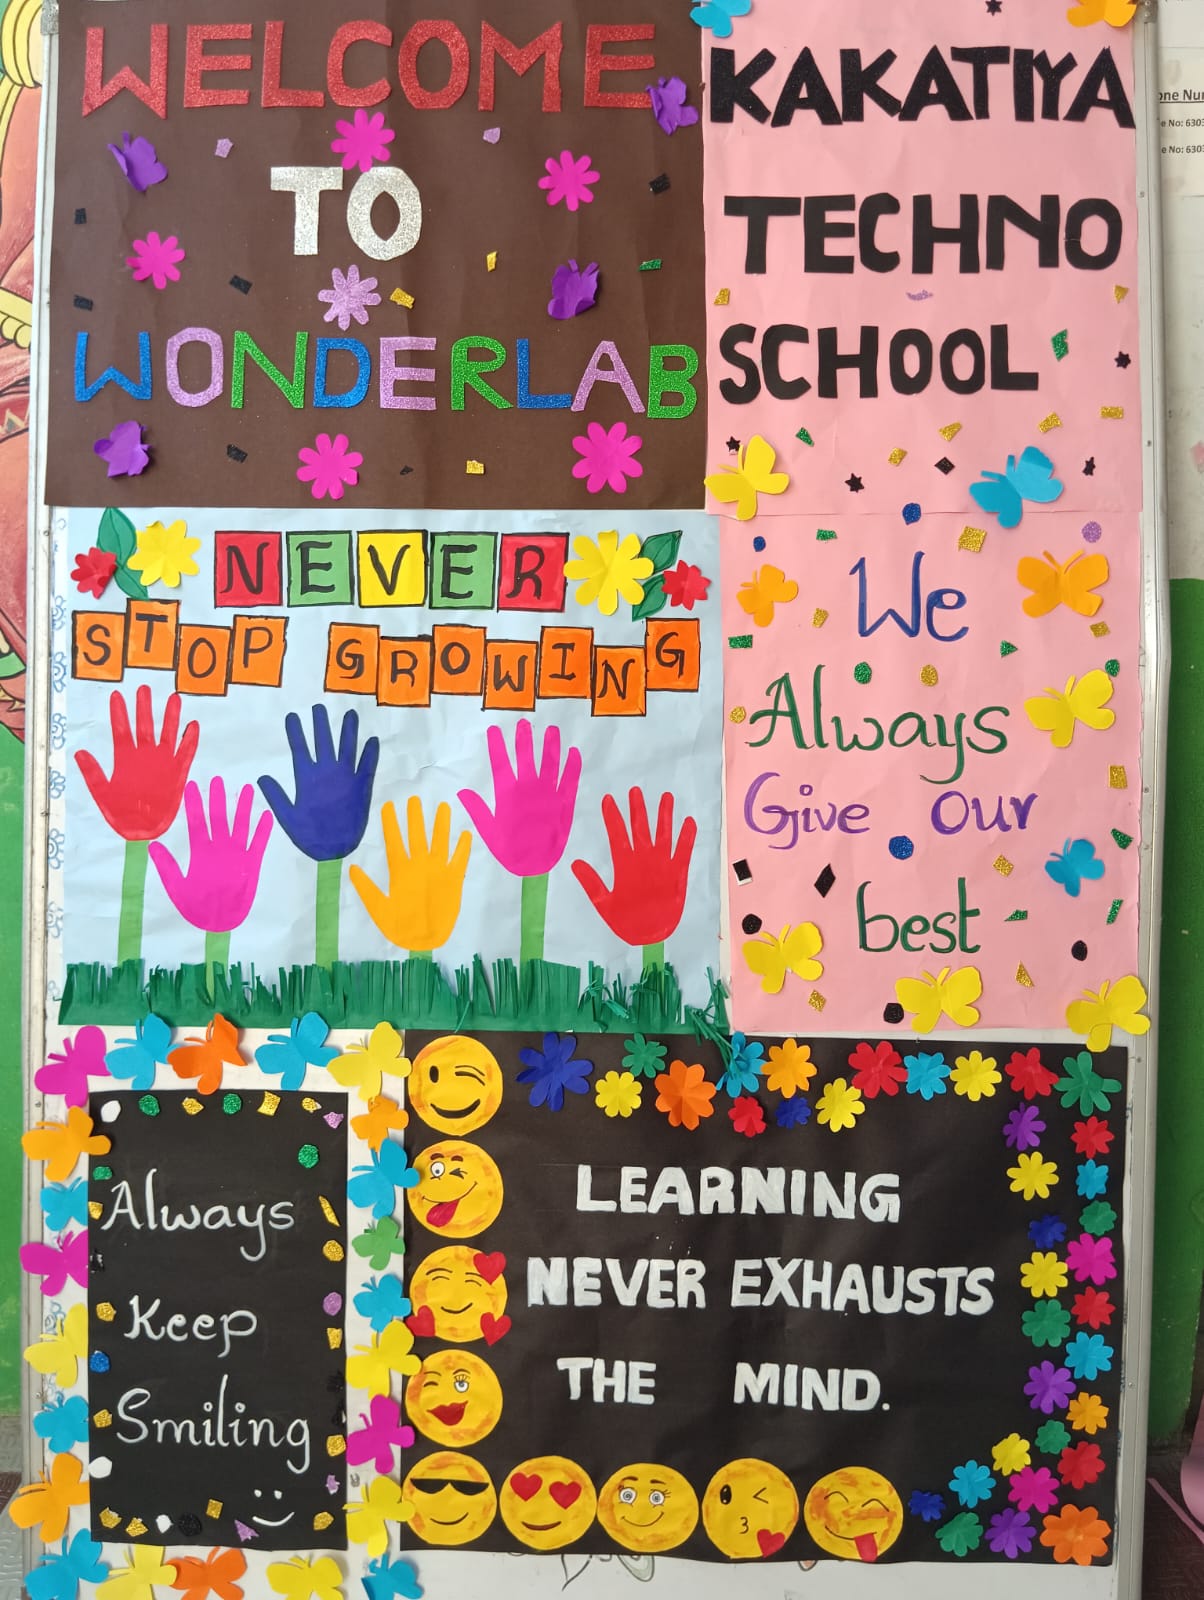 WELCOME
TO
WONDERLAB
KAKATIYA
TECHNO
SCHOOL
NEVER
STOP GROWING
We
Always
Give our
best
Always
Keep
Smiling
LEARNING
NEVER EXHAUSTS
THE MIND.